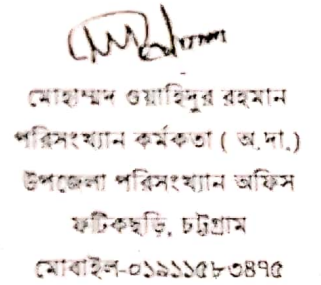 মোহাম্মদ ওয়াহিদুর রহমান
পরিসংখ্যান কর্মকতা ( অ.দা.)
উপজেলা পরিসংখ্যান অফিস
ফটিকছড়ি, চট্টগ্রাম
মোবাইল-০১৯১১৫৮৩৪৭৫